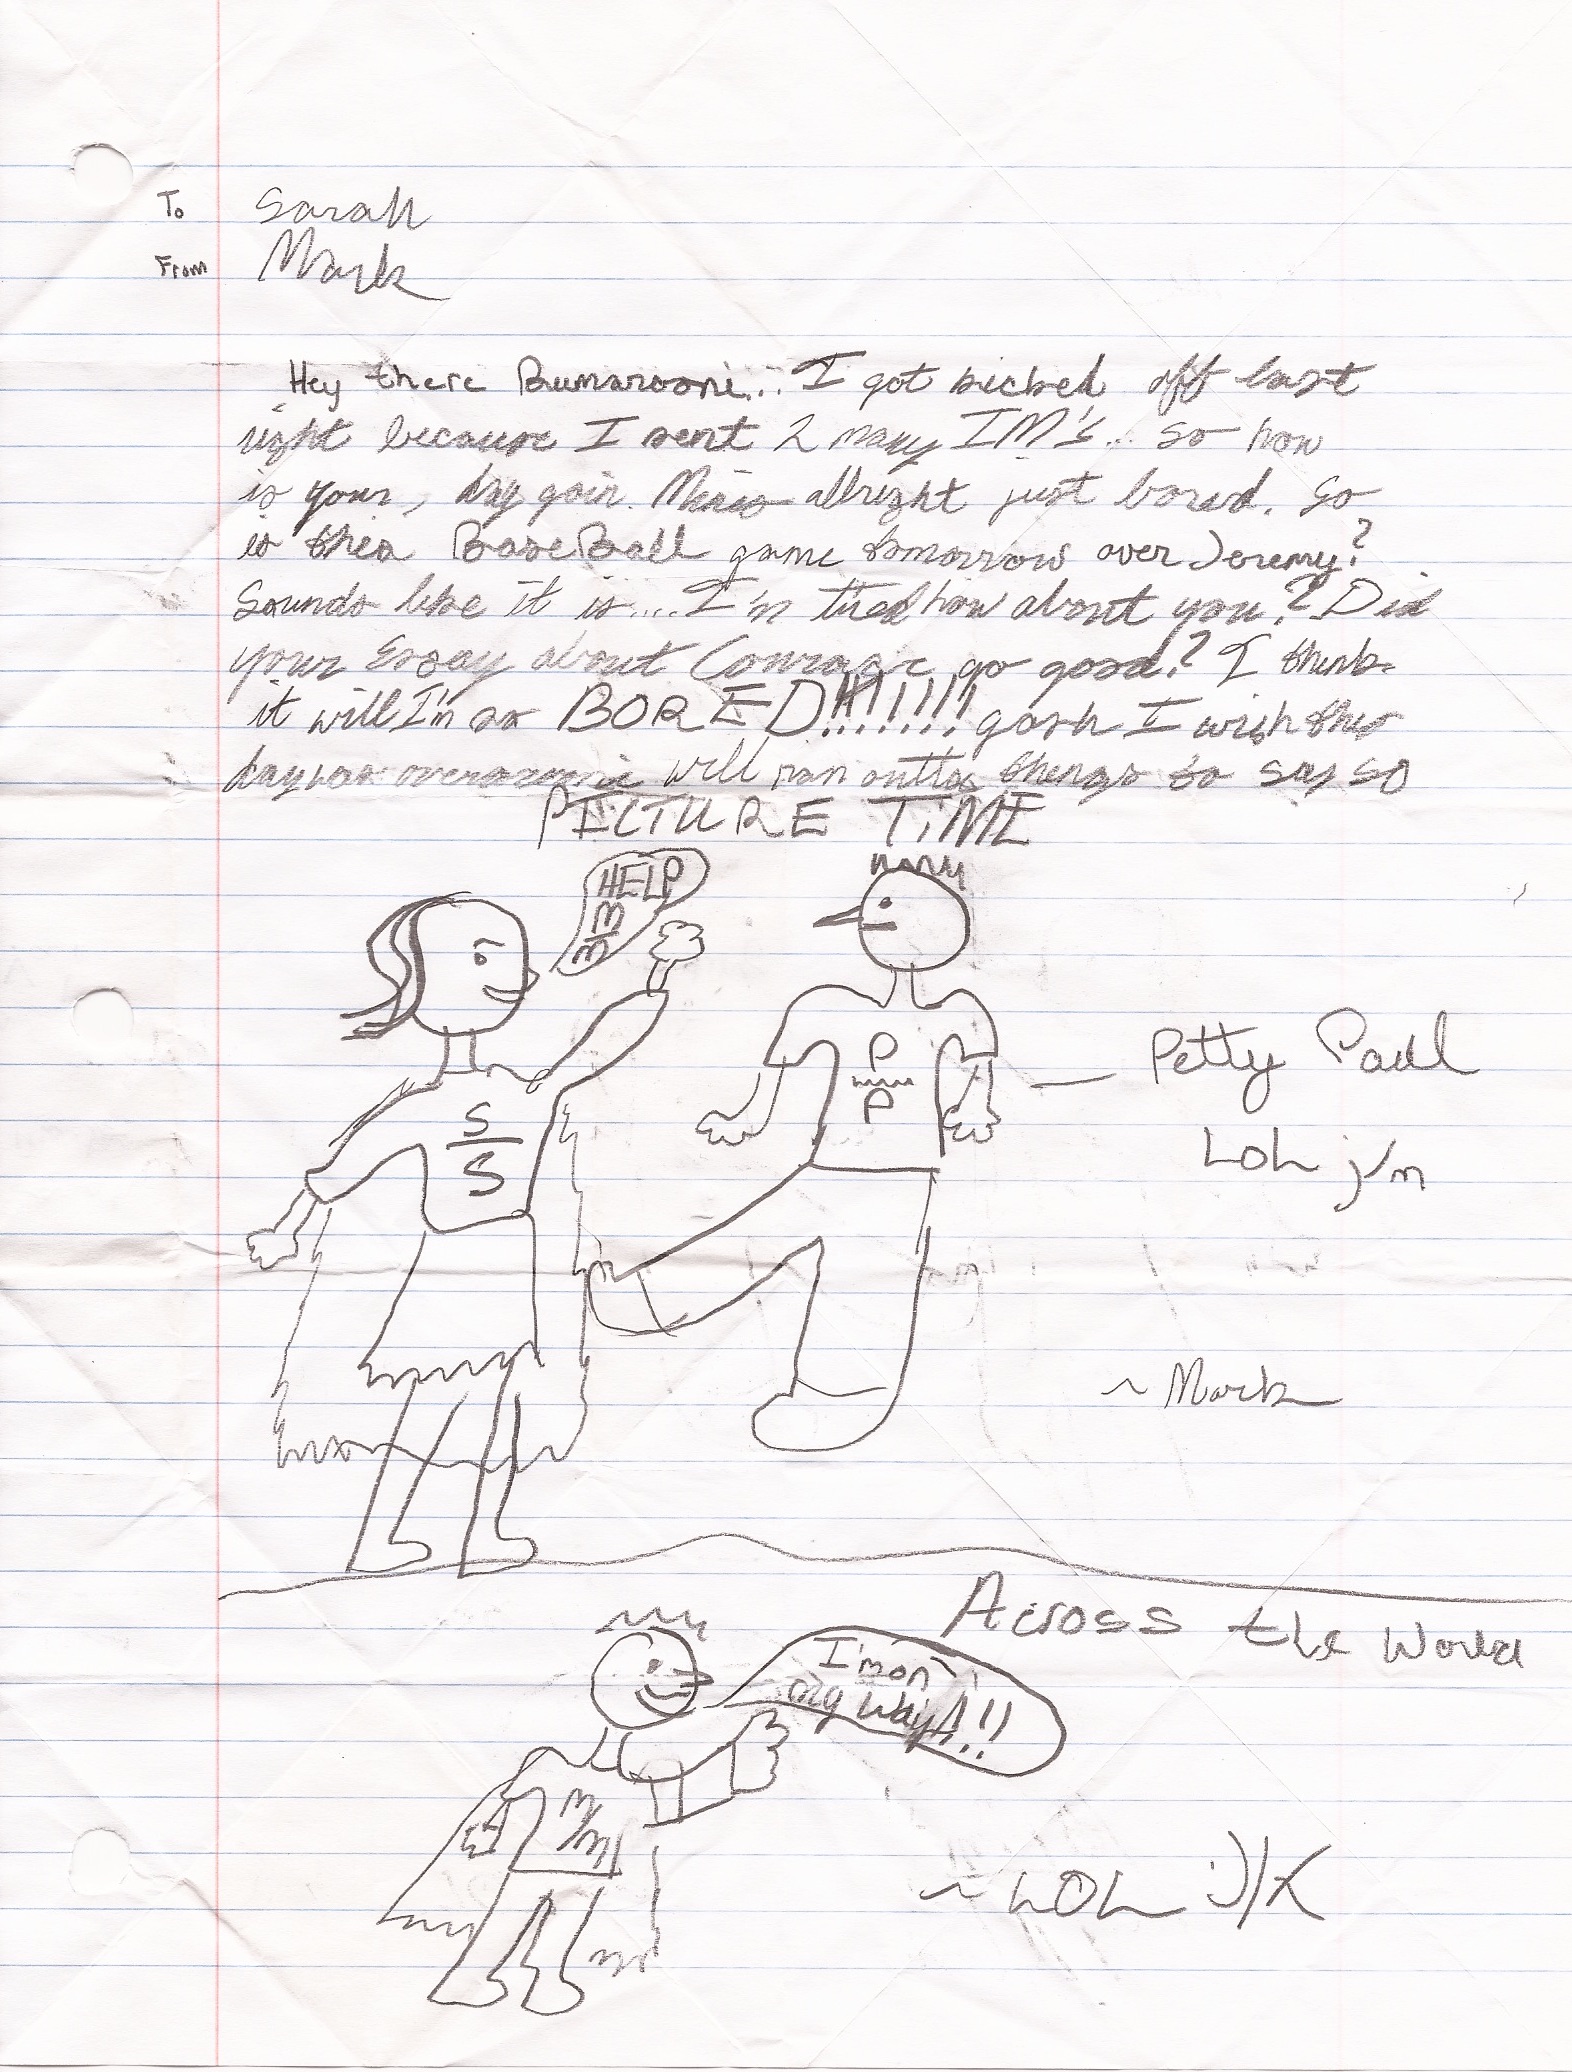 To Sarah
From Mark
Hey there Bumarooni... I got kicked off last
night because I sent 2 many IM's... so how
is your, day goin. Mines allright just bored. So
is this BaseBall game tomorrow over Jeremy?
Sounds like it is.... I'm tired how about you? Did
your Essay about Courage go good? I think
it will I'm so BORED!!!!!!! gosh I wish this
day was over well ran outta things to say so
PICTURE TIME
HELP
M
M
P
P
Petty Paul
LOL j/m
S
S
~Mark
Across the World
I'm on
my way!!!
M/M
~LOL J/K